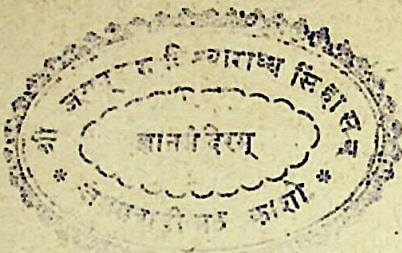 श्री जगद्गुरु विश्वाराध्य सिंहासन
ज्ञानमंदिरम्
* जंगमवाडी मठ काशी *